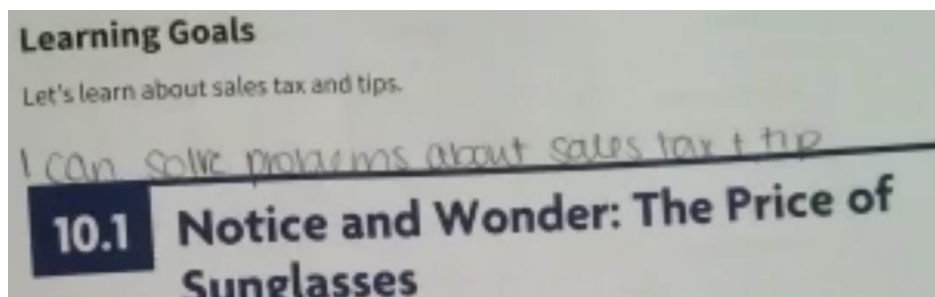 Learning Goals
Let's learn about sales tax and tips.
I can solve problems about sales tax + tip
10.1 Notice and Wonder: The Price of
Sunglasses